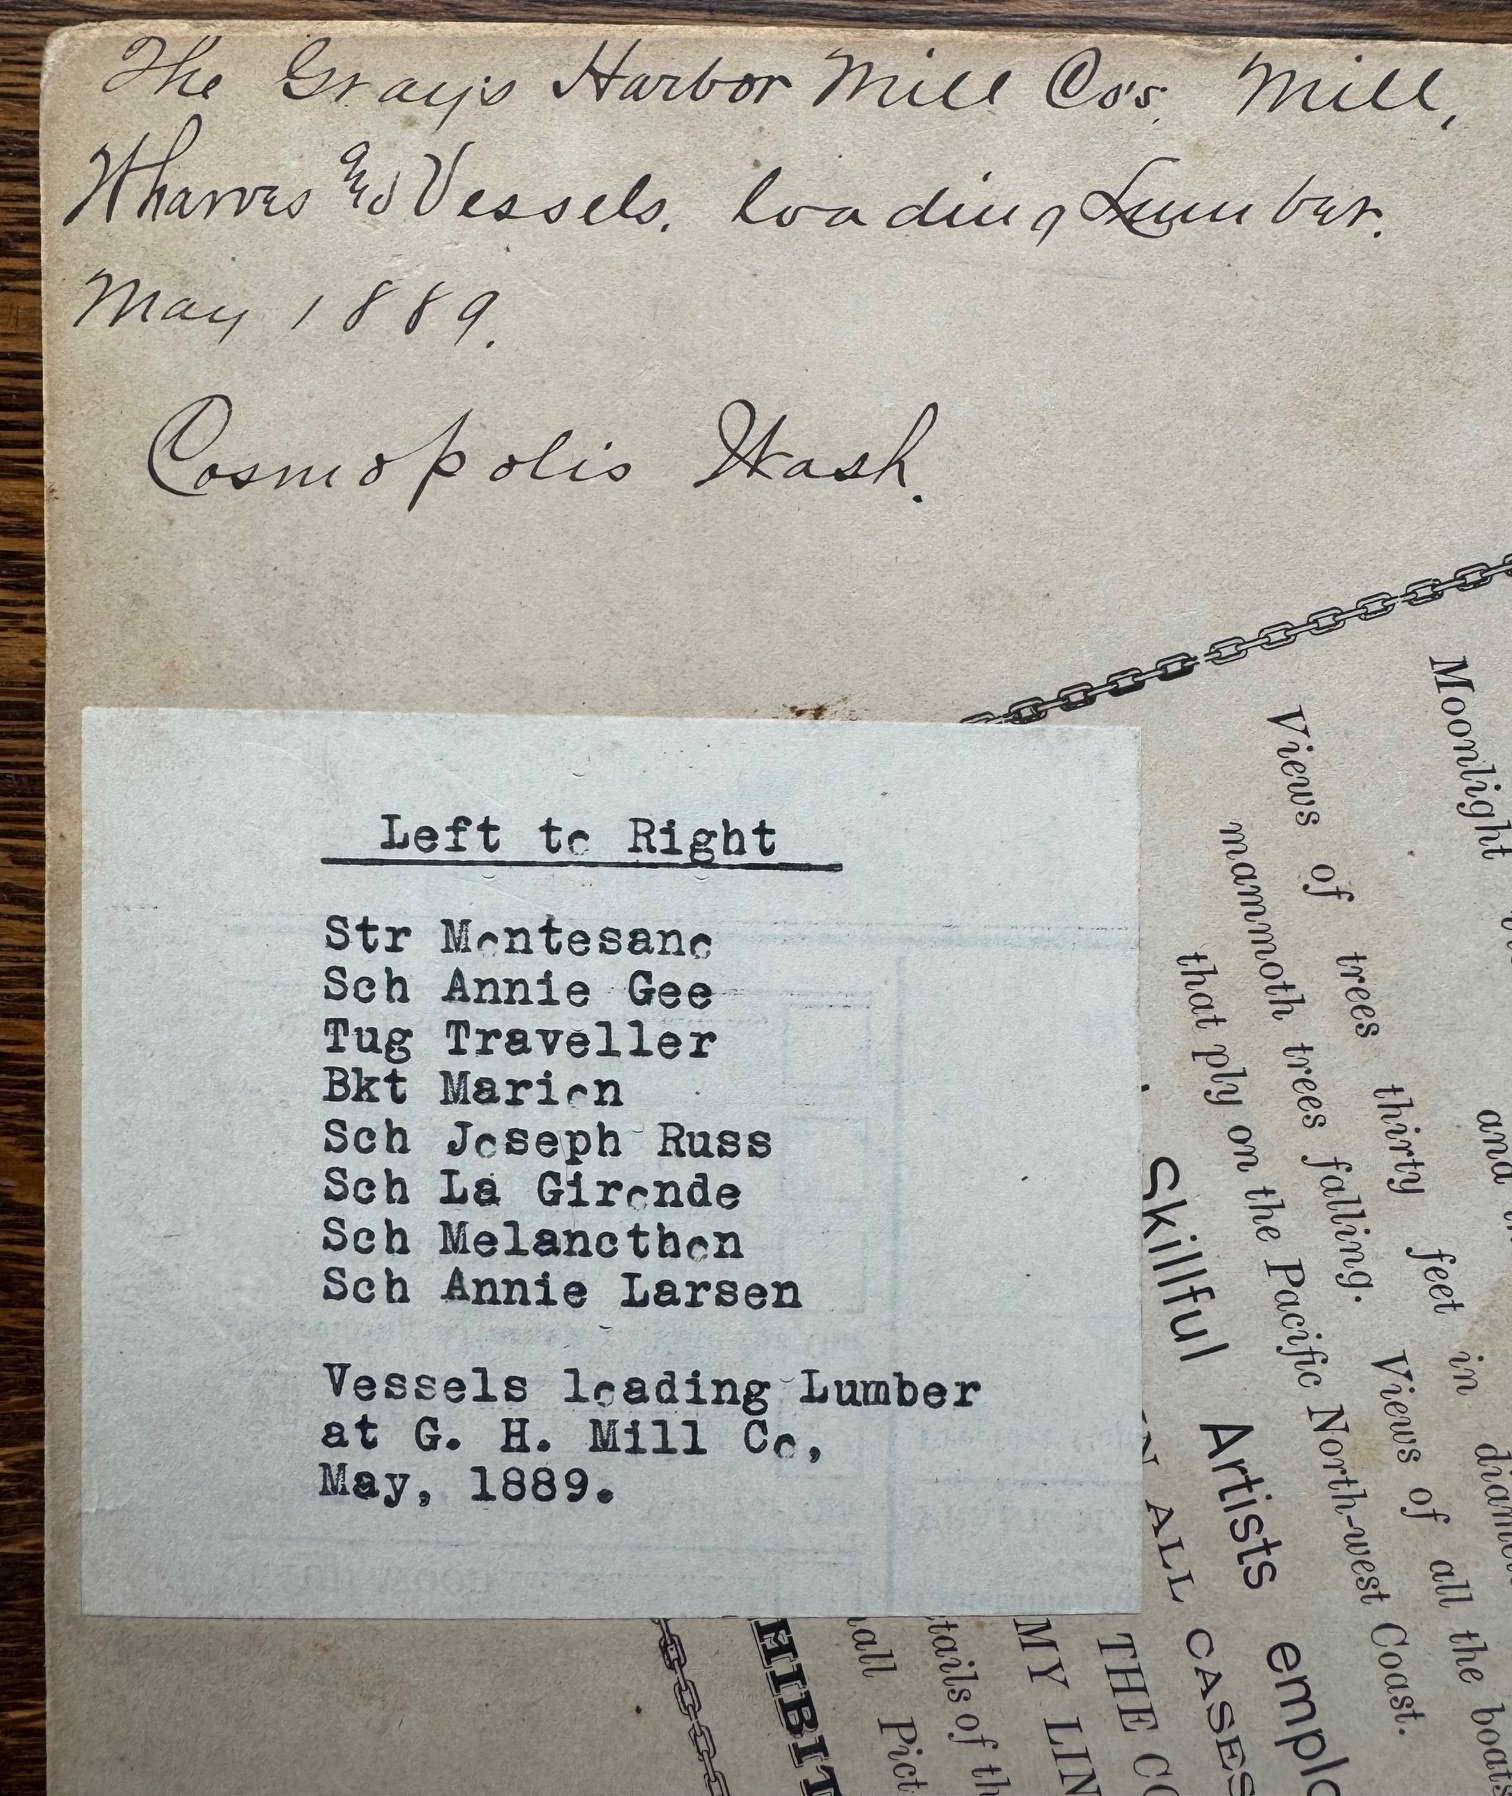 The Grays Harbor Mill Co's. Mill,
Wharves and Vessels. loading Lumber.
May 1889.
Cosmopolis Wash.
Left to Right
Str Montesano
Sch Annie Gee
Tug Traveller
Bkt Marion
Sch Joseph Russ
Sch La Gironde
Sch Melancthon
Sch Annie Larsen
Vessels loading Lumber
at G. H. Mill Co,
May, 1889.
Moonlight
Views of trees thirty feet in
mammoth trees falling. Views of all the boats
that ply on the Pacific North-west Coast.
and
Skillful Artists
IN ALL CASES
THE
MY
of
Pict